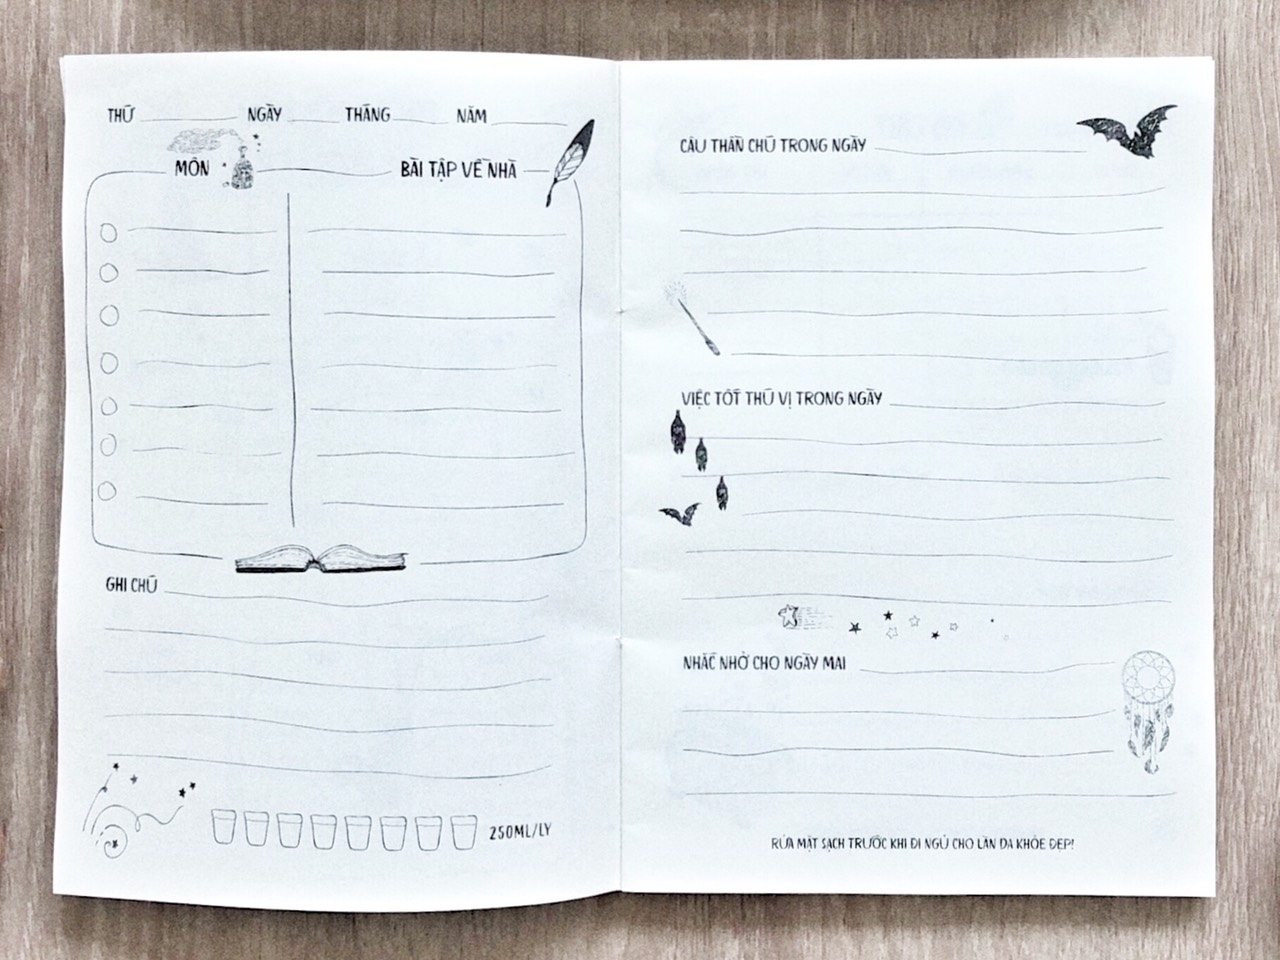 THỨ NGÀY THÁNG NĂM
MÔN BÀI TẬP VỀ NHÀ
GHI CHÚ
250ML/LY
CÂU THẦN CHÚ TRONG NGÀY
VIỆC TỐT THÚ VỊ TRONG NGÀY
NHẮC NHỞ CHO NGÀY MAI
RỬA MẶT SẠCH TRƯỚC KHI ĐI NGỦ CHO LÀN DA KHỎE ĐẸP!